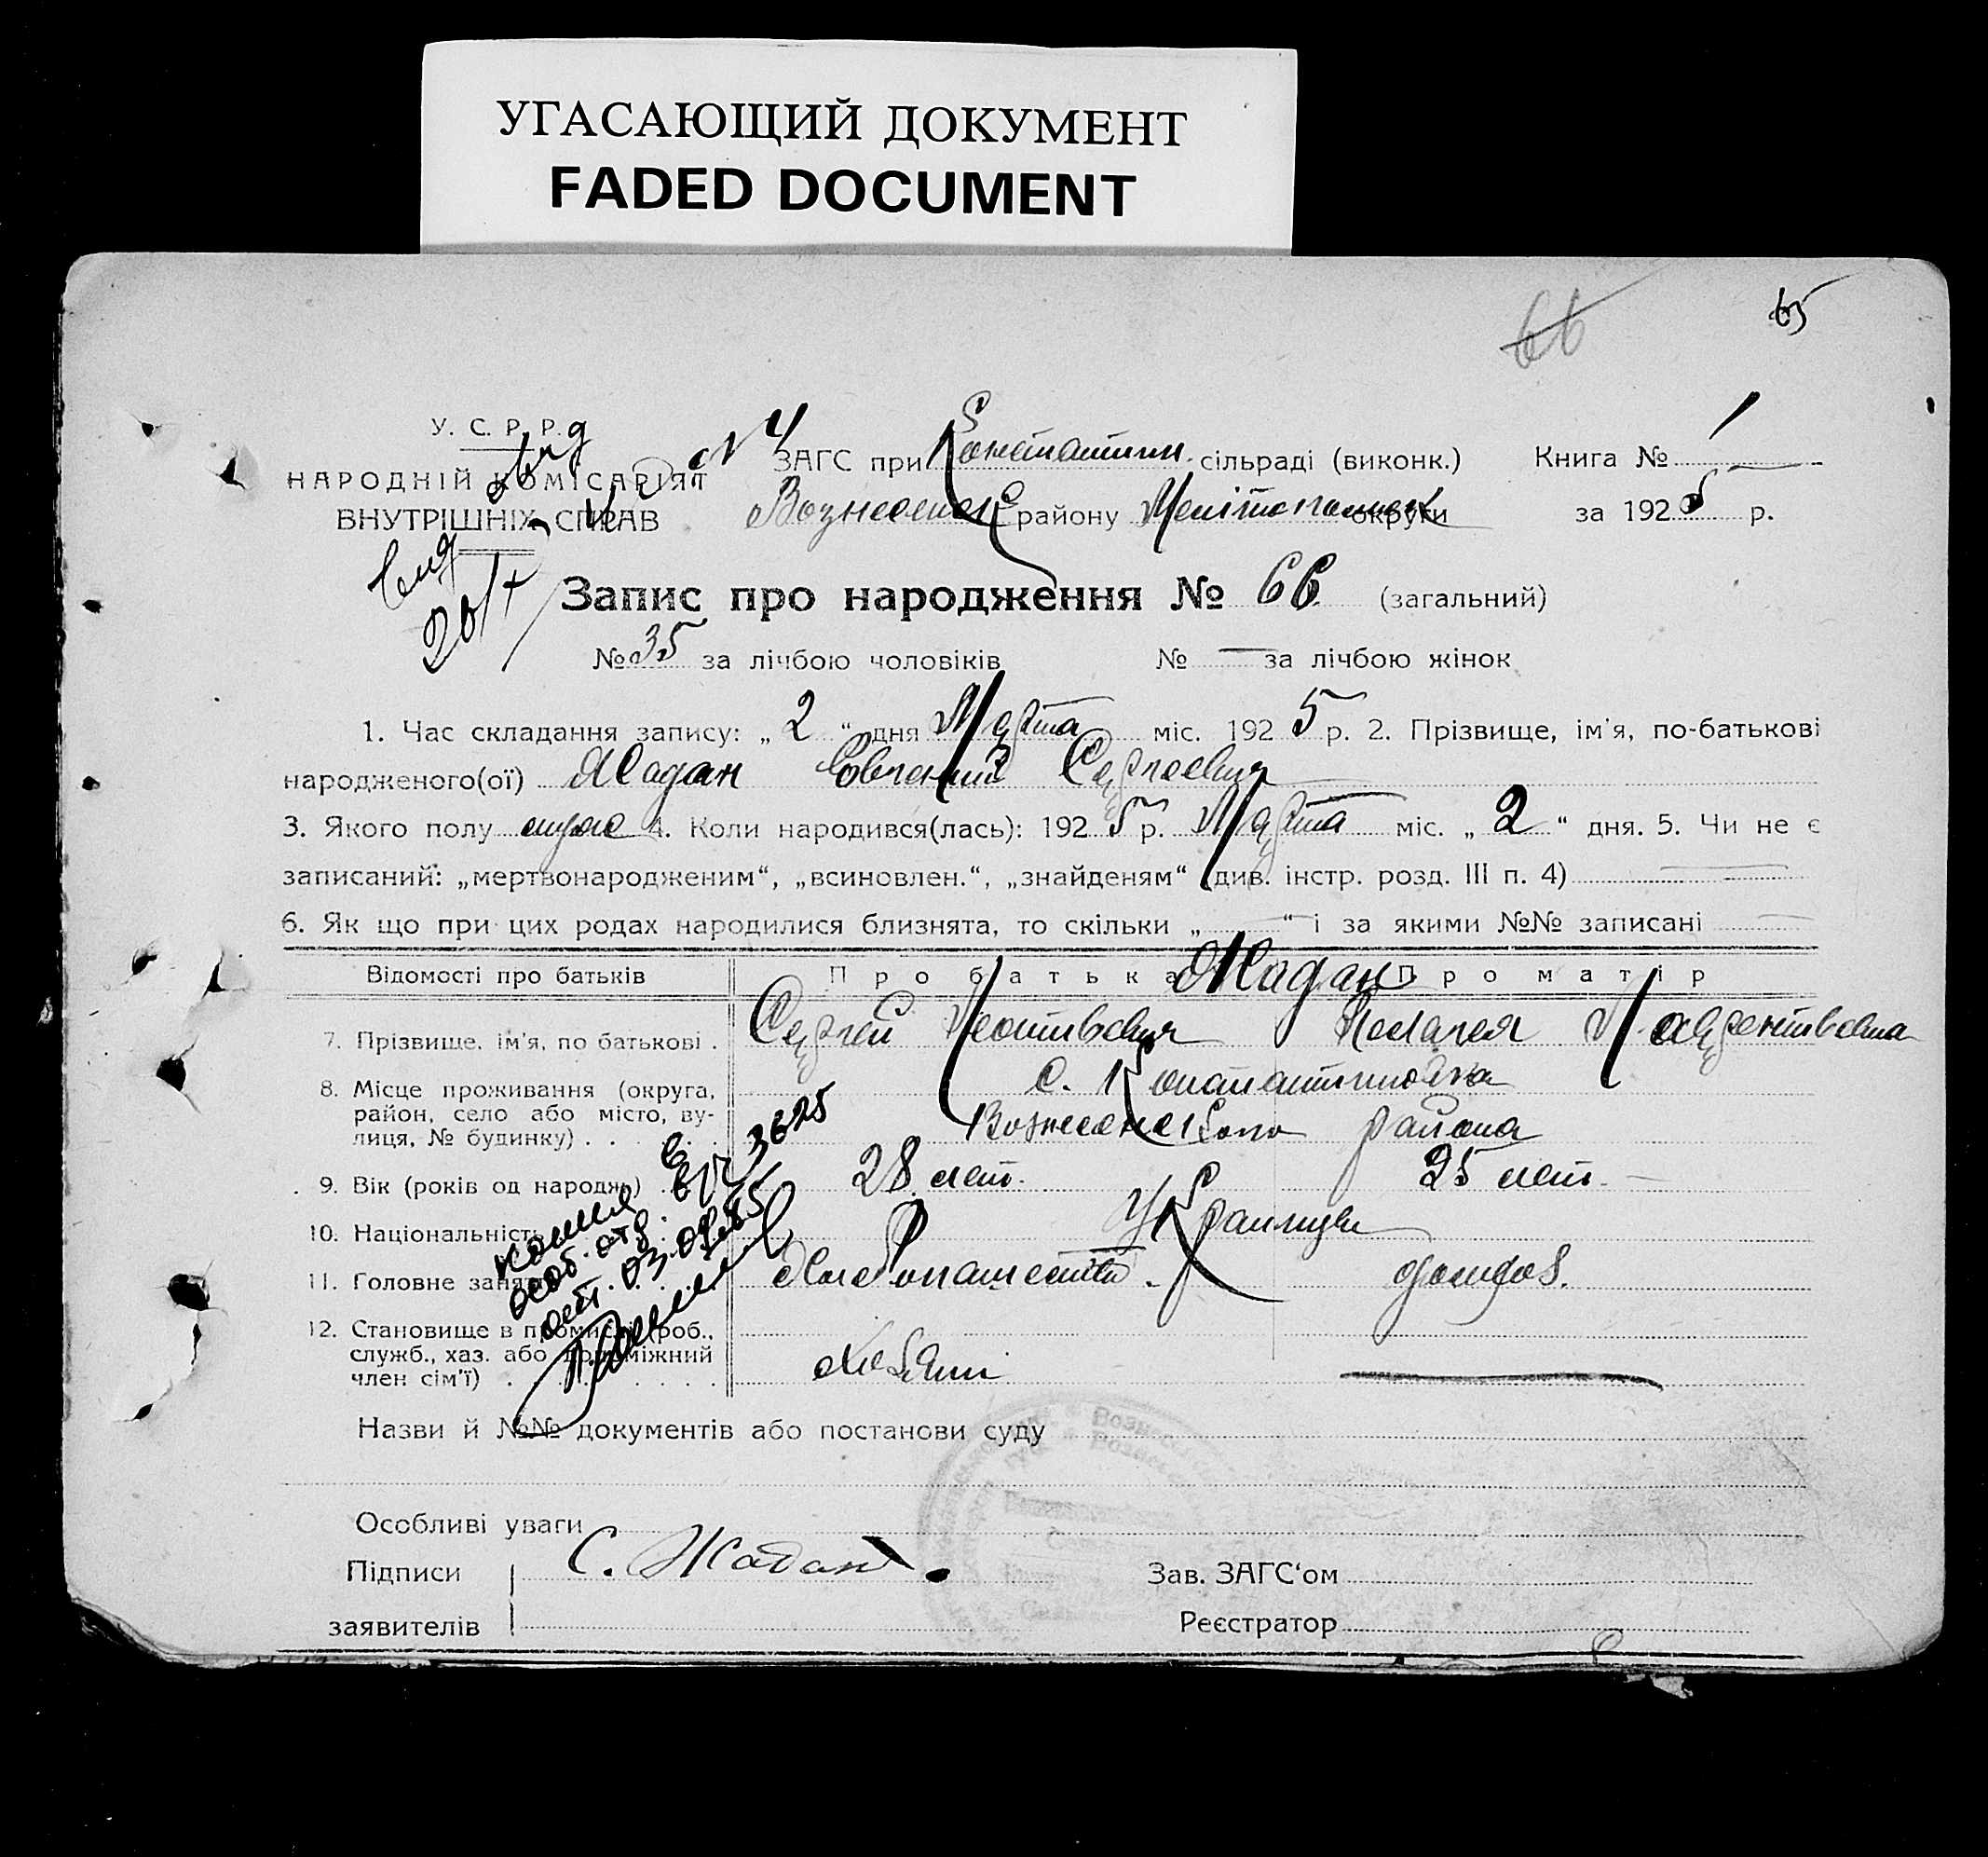 УГАСАЮЩИЙ ДОКУМЕНТ
FADED DOCUMENT
66 65
У. С. Р. Р.
НАРОДНІЙ КОМІСАРІЯТ
ВНУТРІШНІХ СПРАВ
ЗАГС при Константин. сільраді (виконк.) Книга № 1
Вознесенск району Мелітопольськ округи за 1925 р.
Запис про народження № 66 (загальний)
№ 35 за лічбою чоловіків № — за лічбою жінок
1. Час складання запису: „ 2 “ дня Марта міс. 1925 р. 2. Прізвище, ім'я, по-батькові
народженого(ої) Жадан Евгений Сергеевич
3. Якого полу муже 4. Коли народився(лась): 1925 р. Марта міс. „ 2 “ дня. 5. Чи не є
записаний: „мертвонародженим“, „всиновлен.“, „знайденям“ (див. інстр. розд. III п. 4)
6. Як що при цих родах народилися близнята, то скільки „ — “ і за якими №№ записані —
Відомості про батьків Про батька Жадан Про матір
7. Прізвище, ім'я, по батькові . Сергей Леонтьевич Пелагея Лаврентьевна
8. Місце проживання (округа, район, село або місто, вулиця, № будинку) . с. Константиновка
Вознесенского района
9. Вік (років од народж.) 28 лет. 25 лет.
10. Національність Украинцы
11. Головне занят Хлебопашество. домохоз.
12. Становище в промислі (роб.,
служб., хаз. або допоміжний
член сім'ї) хозяин —
Назви й №№ документів або постанови суду
Особливі уваги
Підписи С. Жадан. Зав. ЗАГС‘ом
заявителів Реєстратор